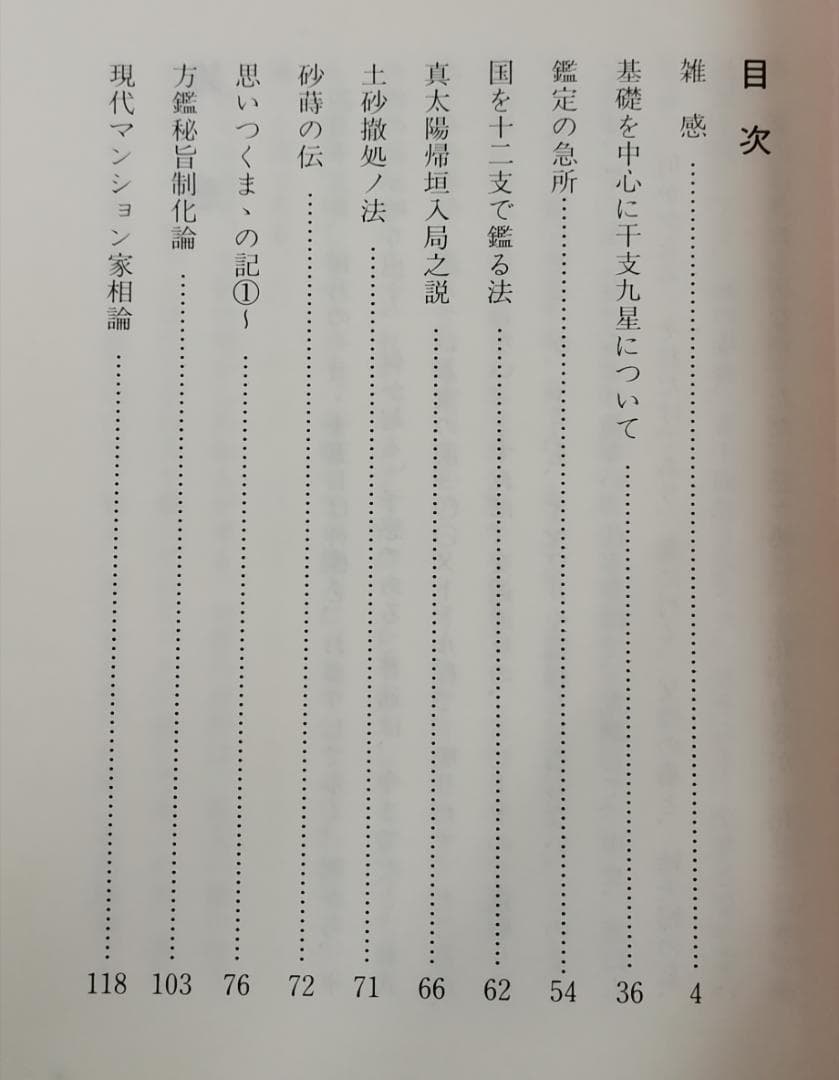 目次
雑感……4
基礎を中心に干支九星について……36
鑑定の急所……54
国を十二支で鑑る法……62
真太陽帰垣入局之説……66
土砂撤処ノ法……71
砂蒔の伝……72
思いつくまゝの記①〜……76
方鑑秘旨制化論……103
現代マンション家相論……118